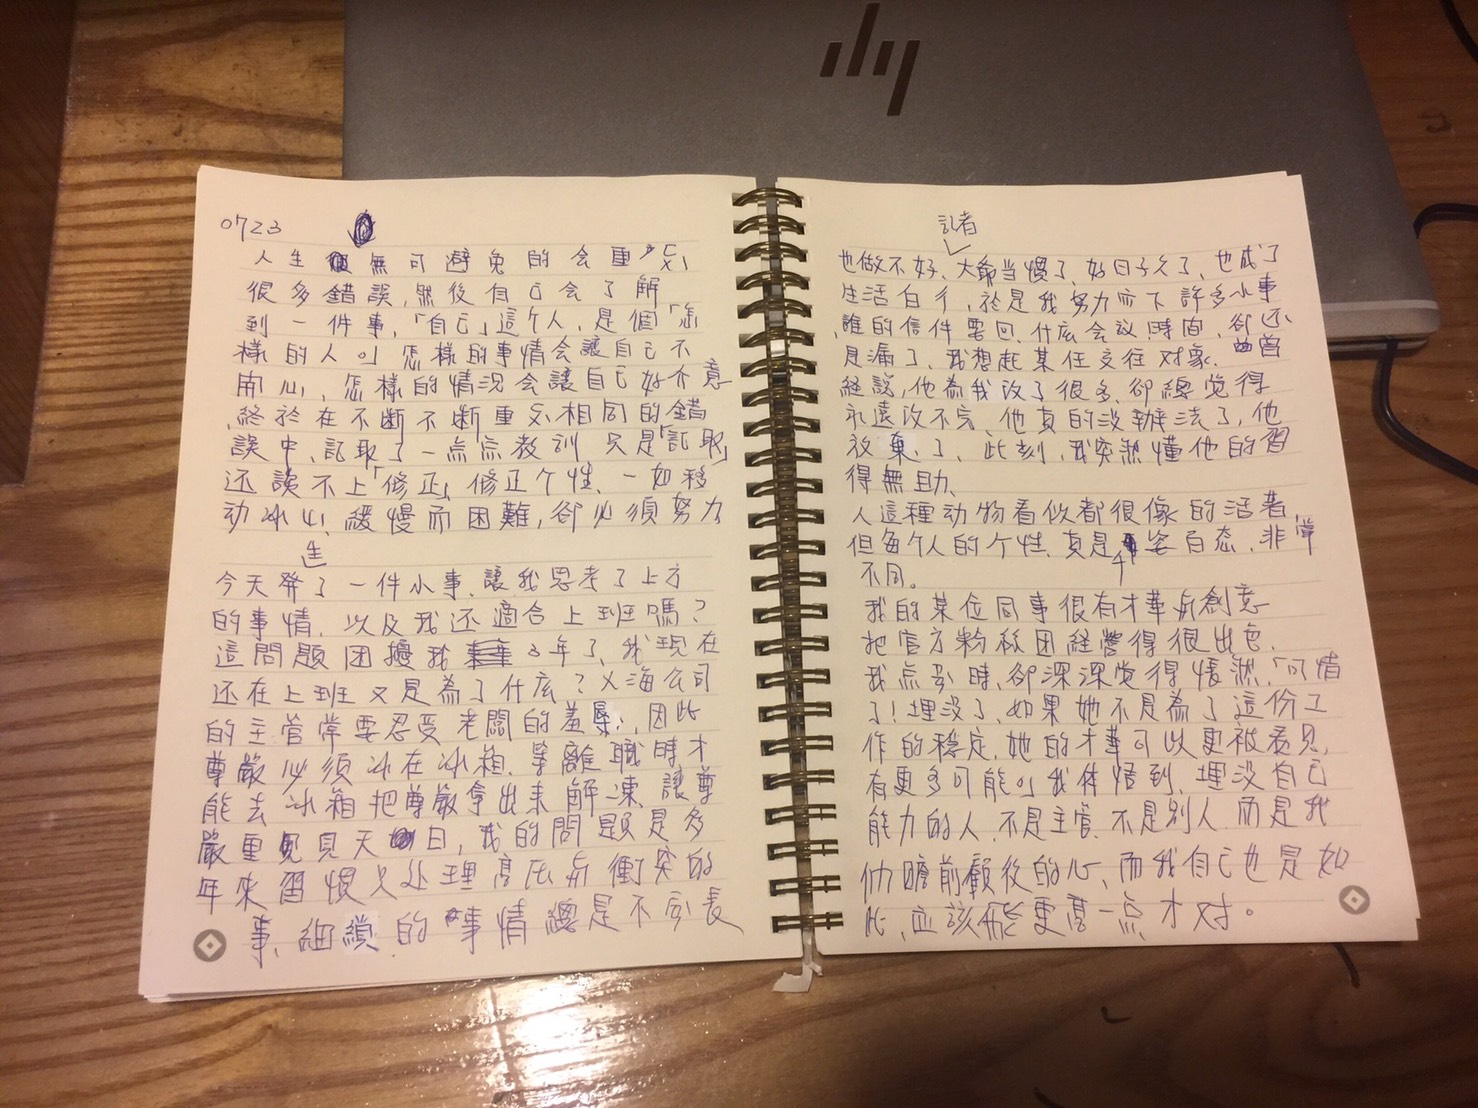 hp
0723
人生無可避免的会重犯
很多錯誤，然後自己会了解
到一件事，「自己」這个人，是個「怎
樣的人」，怎樣的事情会讓自己不
開心，怎樣的情況会讓自己好介意
終於在不断不断重犯相同的錯
誤中，記取了一点点教訓，只是「記取」
还談不上「修正」，修正个性，一如移
动冰山，緩慢而困難，卻必須努力
今天発生了一件小事，讓我思考了上方
的事情，以及我还適合上班嗎？
這問題困擾我3年了，我現在
还在上班又是為了什么？上海公司
的主管常要忍受老闆的羞辱，因此
尊嚴必須冰在冰箱，等離職時才
能去冰箱把尊嚴拿出来解凍，讓尊
嚴重見天日，我的問題是多
年來習慣処理高压與衝突的
事，細瑣的事情總是不長
也做不好、記者大爺当慣了，好日子久了，也成了
生活白，於是我努力許多小事
誰的信件要回，什么会议時間，卻还
是漏了，我想起某任交往对象，曾
経説，他為我改了很多，卻總覚得
永遠改不完，他真的没辦法了，他
放棄了，此刻，我突然懂他的
得無助、
人這種动物看似都很像的活著，
但每个人的个性，真是千姿百态，非常
不同。
我的某位同事很有才華與創意
把官方粉絲团経営得很出色，
我点到時，卻深深覚得悵然，「可惜
了！埋没了，如果她不是為了這份工
作的穩定，她的才華可以更被看見，
有更多可能」，我体悟到，埋没自己
能力的人，不是主管，不是别人，而是我
们瞻前顧後的心，而我自己也是如
此，应该飛更高一点才对。